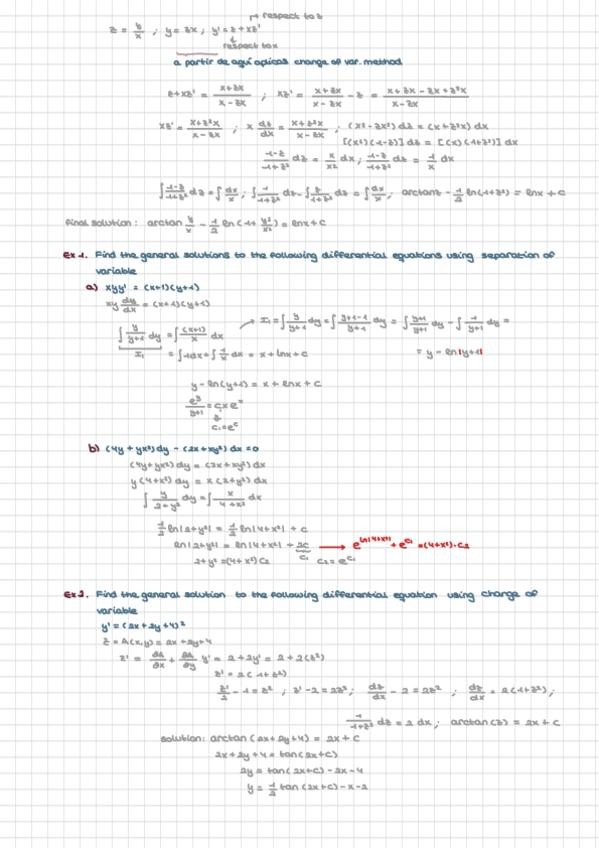 ↱ respect to z
z = y/x ; y = zx ; y' = z + xz'
respect to x
a partir de aquí aplicas change of var. method
z + xz' = (x+zx)/(x-zx) ; xz' = (x+zx)/(x-zx) - z = (x+zx-zx+z²x)/(x-zx)
xz' = (x+z²x)/(x-zx) ; x dz/dx = (x+z²x)/(x-zx) ; (x²-zx²)dz = (x+z²x)dx
[(x²)(1-z)]dz = [(x)(1+z²)]dx
(1-z)/(1+z²) dz = x/x² dx ; (1-z)/(1+z²) dz = 1/x dx
∫(1-z)/(1+z²) dz = ∫dx/x ; ∫1/(1+z²) dz - ∫z/(1+z²) dz = ∫dx/x ; arctan z - 1/2 ln(1+z²) = ln x + C
Final solution: arctan y/x - 1/2 ln(1 + y²/x²) = ln x + C
Ex 1. Find the general solutions to the following differential equations using separation of
variable
a) xyy' = (x+1)(y+1)
xy dy/dx = (x+1)(y+1)
∫ y/(y+1) dy = ∫ (x+1)/x dx → I₁ = ∫ y/(y+1) dy = ∫ (y+1-1)/(y+1) dy = ∫ (y+1)/(y+1) dy - ∫ 1/(y+1) dy =
I₁ = ∫1dx + ∫1/x dx = x + ln x + C = y - ln|y+1|
y - ln(y+1) = x + ln x + C
e^y/(y+1) = C₁xe^x
C₁ = e^C
b) (4y + yx²)dy - (2x + xy²)dx = 0
(4y + yx²)dy = (2x + xy²)dx
y(4+x²)dy = x(2+y²)dx
∫ y/(2+y²) dy = ∫ x/(4+x²) dx
1/2 ln|2+y²| = 1/2 ln|4+x²| + C
ln|2+y²| = ln|4+x²| + 2C → e^(ln|4+x²|) + e^C₁ = (4+x²)·C₂
C₁
2+y² = (4+x²)C₂ C₂ = e^C₁
Ex 2. Find the general solution to the following differential equation using change of
variable
y' = (2x+2y+4)²
z = A(x,y) = 2x+2y+4
z' = ∂A/∂x + ∂A/∂y y' = 2 + 2y' = 2 + 2(z²)
z' = 2(1+z²)
z'/2 - 1 = z² ; z' - 2 = 2z² ; dz/dx - 2 = 2z² ; dz/dx = 2(1+z²) ;
1/(1+z²) dz = 2 dx ; arctan(z) = 2x + C
solution: arctan(2x+2y+4) = 2x + C
2x+2y+4 = tan(2x+C)
2y = tan(2x+C) - 2x - 4
y = 1/2 tan(2x+C) - x - 2